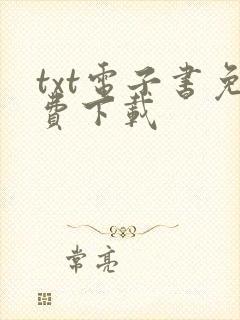 txt電子書免
費下載
常亮